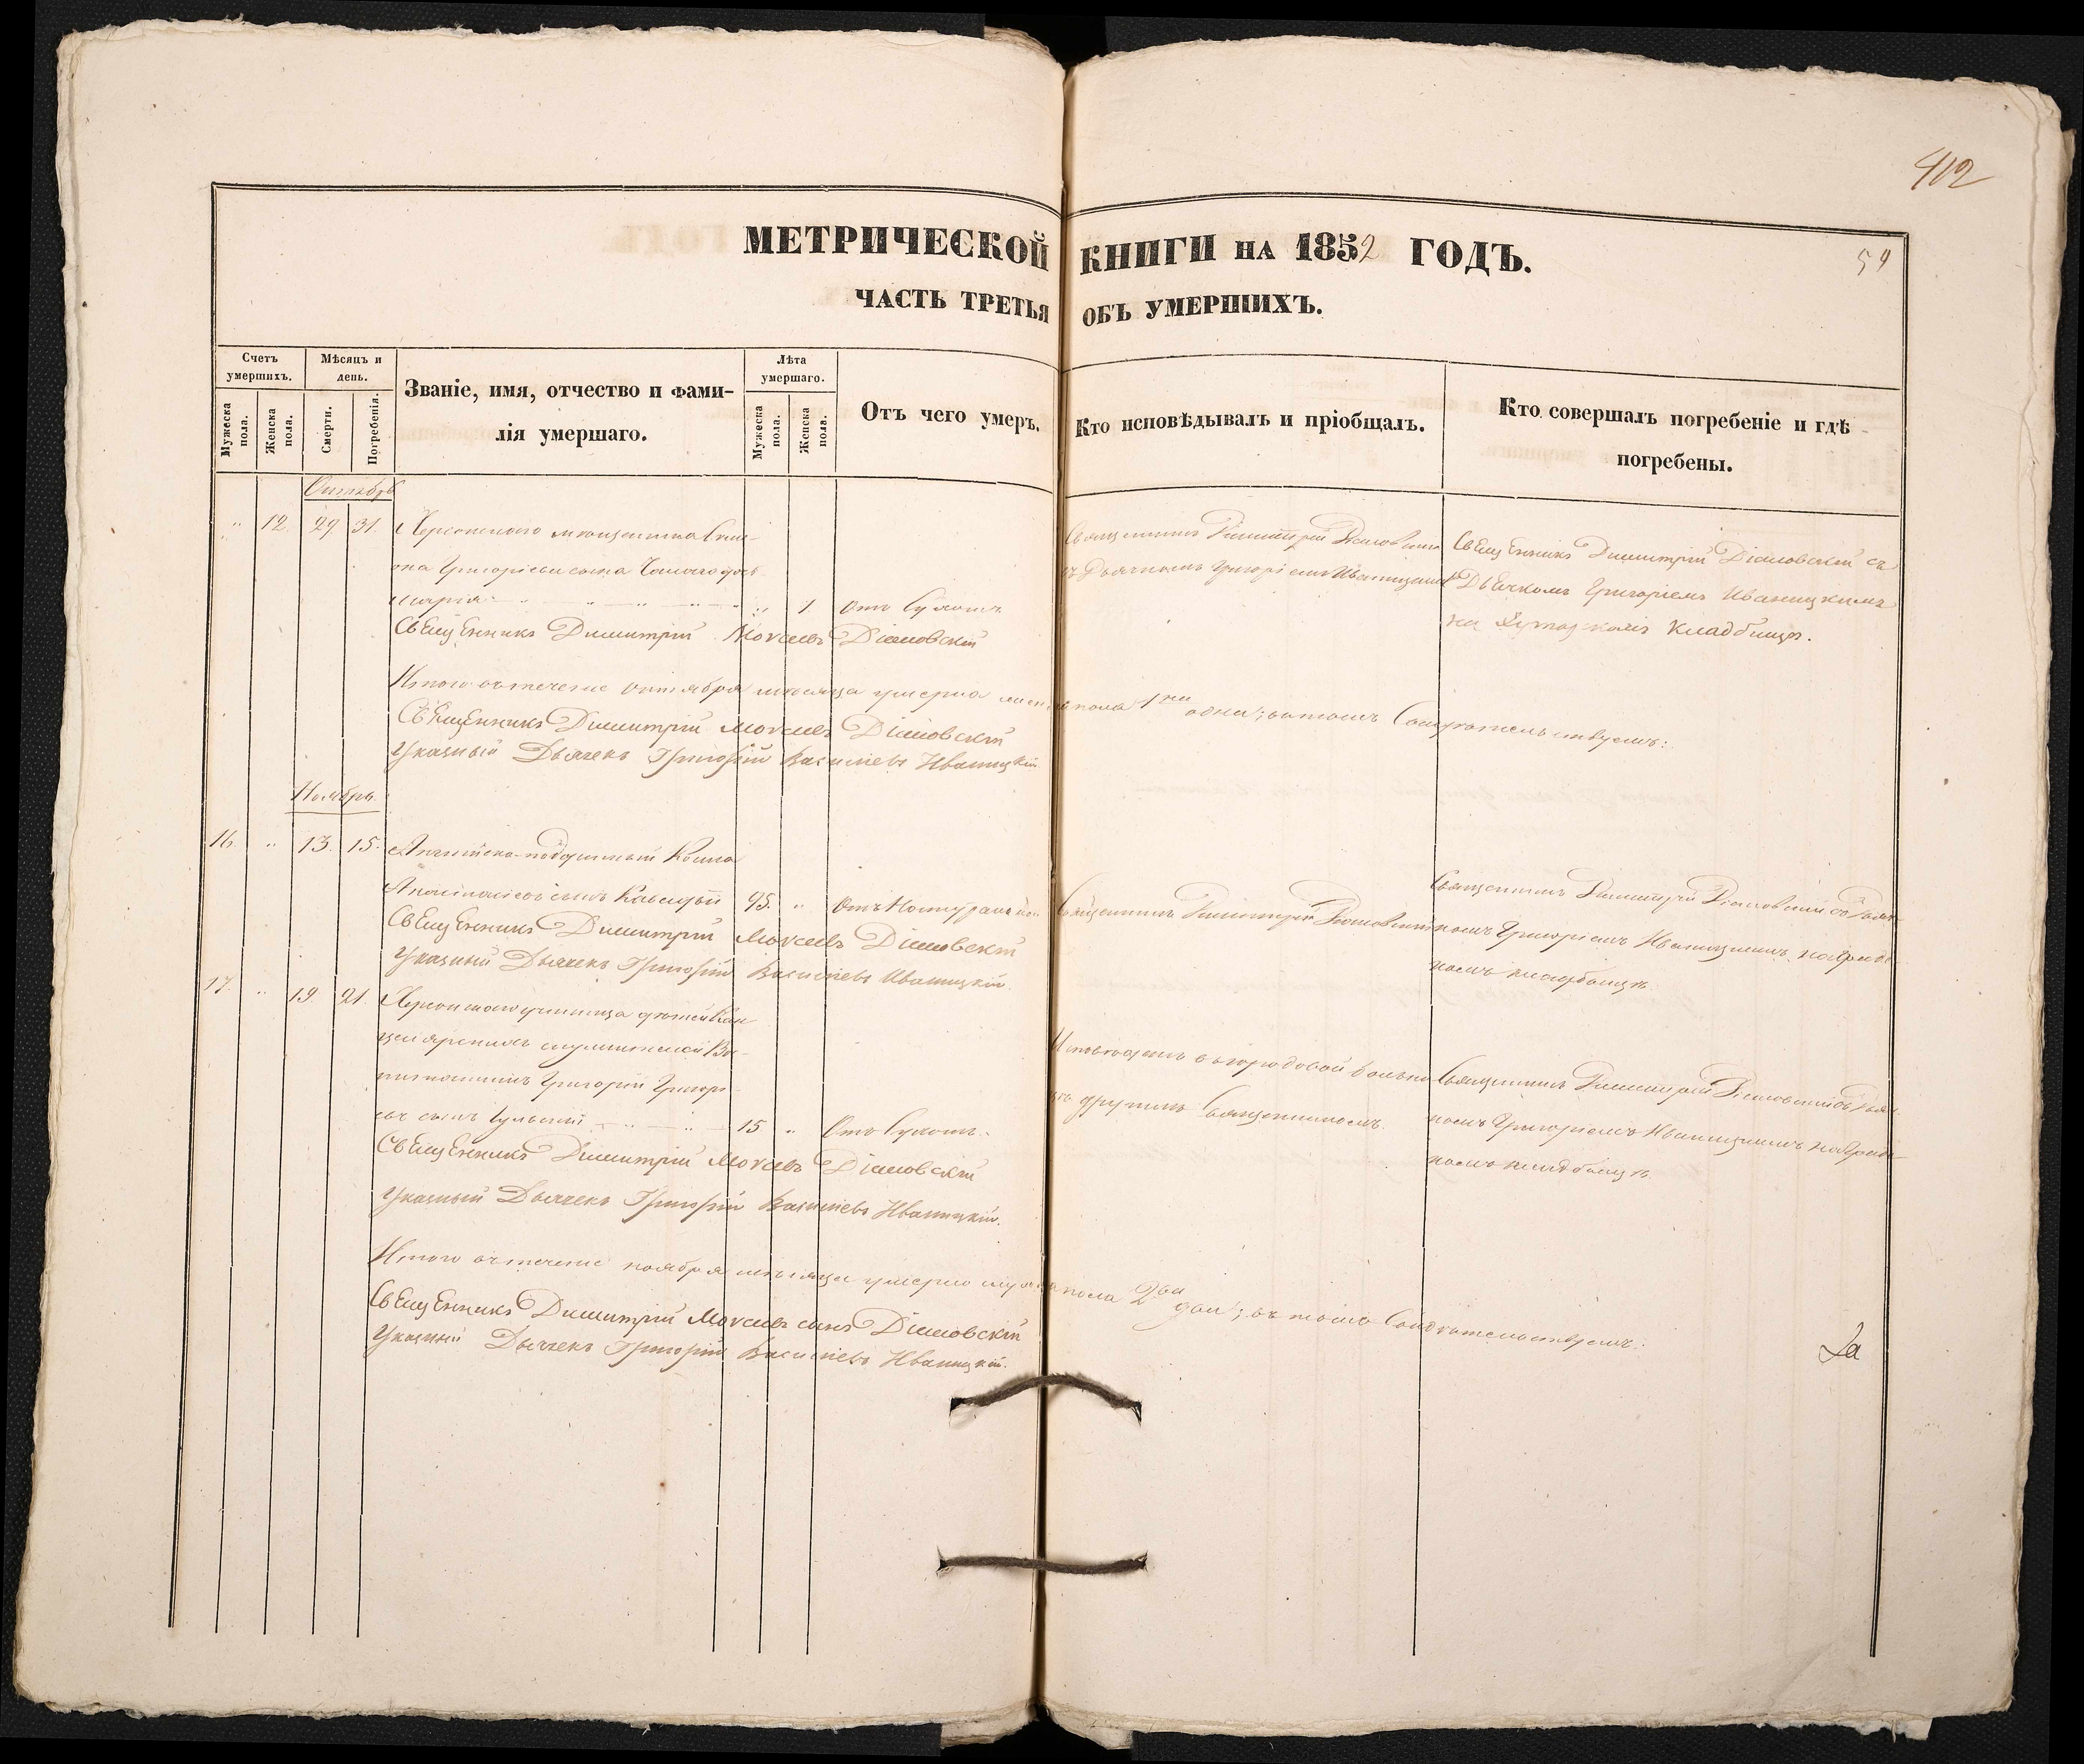 412
МЕТРИЧЕСКОЙ КНИГИ НА 1852 ГОДЪ.
59
ЧАСТЬ ТРЕТЬЯ ОБЪ УМЕРШИХЪ.
Счетъ умершихъ.
Мѣсяцъ и день.
Званіе, имя, отчество и фами-
лія умершаго.
Лѣта умершаго.
Отъ чего умеръ.
Кто исповѣдывалъ и пріобщалъ.
Кто совершалъ погребеніе и гдѣ
погребены.
Мужеска пола.
Женска пола.
Смерти.
Погребенія.
Мужеска пола.
Женска пола.
Октябрь
" 12. 29 31. Херсонскаго мѣщанина
Григорьева сына дочь
Марія " 1. Отъ Сухотъ
Священникъ Димитрій
съ Дьячкомъ Григоріемъ Иваницкимъ
Священникъ Димитрій Діаловскій съ
Дьячкомъ Григоріемъ Иваницкимъ
на кладбищѣ.
Священникъ Димитрій Моvсеевъ Діаловскій
Итого въ теченіе октября мѣсяца умерло женска пола 1 одна; въ томъ свидѣтельствуемъ:
Священникъ Димитрій Моvсеевъ Діаловскій
Указный Дьячекъ Григорій Васильевъ Иваницкій.
Ноябрь.
16. " 13. 15. подданный
сынъ 95. " Отъ
Священникъ Димитрій Діаловскій
Священникъ Димитрій Діаловскій съ Дьяч-
комъ Григоріемъ Иваницкимъ на
кладбищѣ.
Священникъ Димитрій Моvсеевъ Діаловскій
Указный Дьячекъ Григорій Васильевъ Иваницкій.
17. " 19. 21. Херсонскаго училища дѣтей Кан-
целярскихъ служителей Во-
спитанникъ Григорій Григорь-
евъ сынъ 15 " Отъ Сухотъ.
Исповѣданъ въ городовой больни-
цѣ другимъ Священникомъ.
Священникъ Димитрій Діаловскій съ Дьяч-
комъ Григоріемъ Иваницкимъ на
кладбищѣ.
Священникъ Димитрій Моvсеевъ Діаловскій
Указный Дьячекъ Григорій Васильевъ Иваницкій.
Итого въ теченіе ноября мѣсяца умерло мужеска пола 2 два; въ томъ Свидѣтельствуемъ:
Священникъ Димитрій Моvсеевъ сынъ Діаловскій
Указный Дьячекъ Григорій Васильевъ Иваницкій.